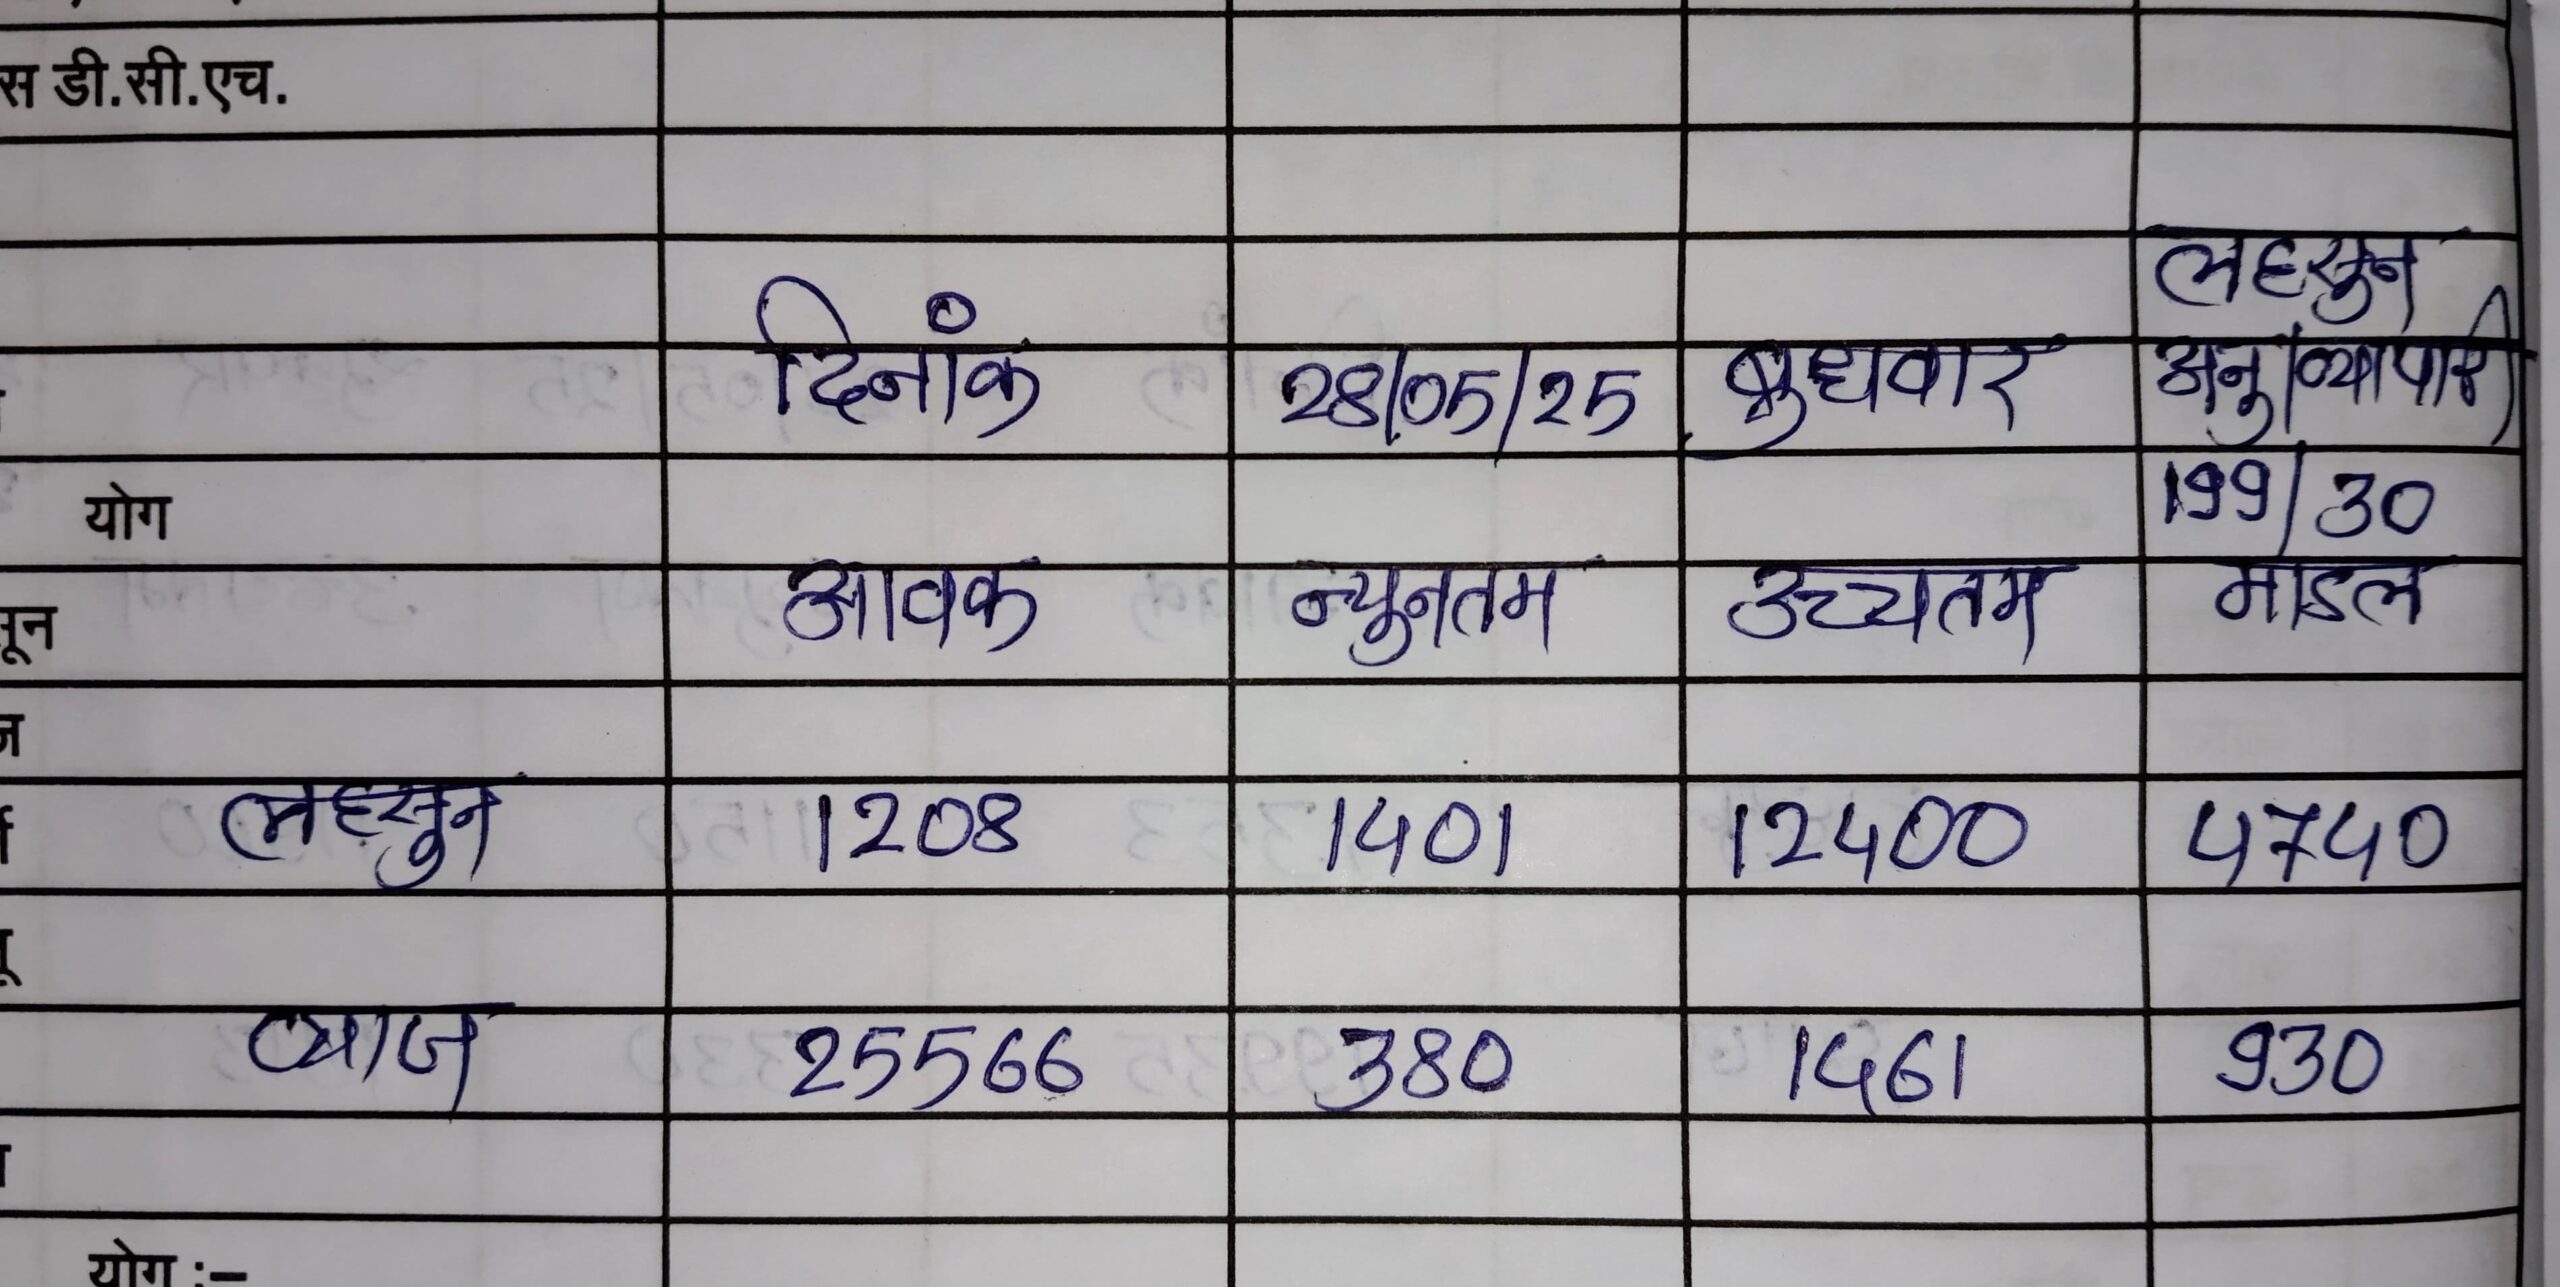 स डी.सी.एच.
लहसुन
दिनांक 28/05/25 बुधवार अनु/व्यापारी
योग 199/30
सून आवक न्युनतम उच्चतम माडल
लहसुन 1208 1401 12400 4740
प्याज 25566 380 1461 930
योग :–